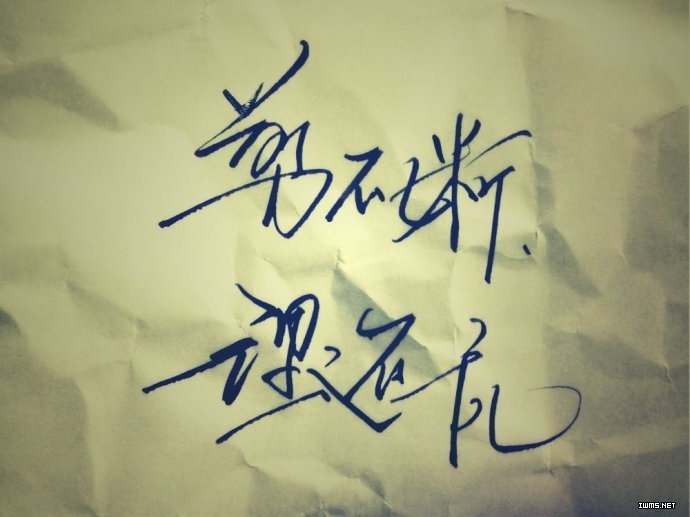 剪不断、
理还乱
IWMS.NET